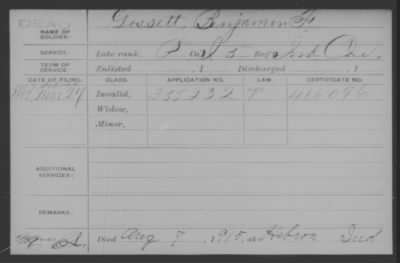 DEAD
NAME OF SOLDIER: Gossett, Benjamin F
SERVICE: Late rank, P Co. Reg't Ind Cav.
TERM OF SERVICE: Enlisted , 1 Discharged , 1
DATE OF FILING. CLASS. APPLICATION NO. LAW. CERTIFICATE NO.
Invalid, 358.232 416096
Widow,
Minor,
ADDITIONAL SERVICES:
REMARKS:
Died Aug 7, 1915, at Hebron Ind